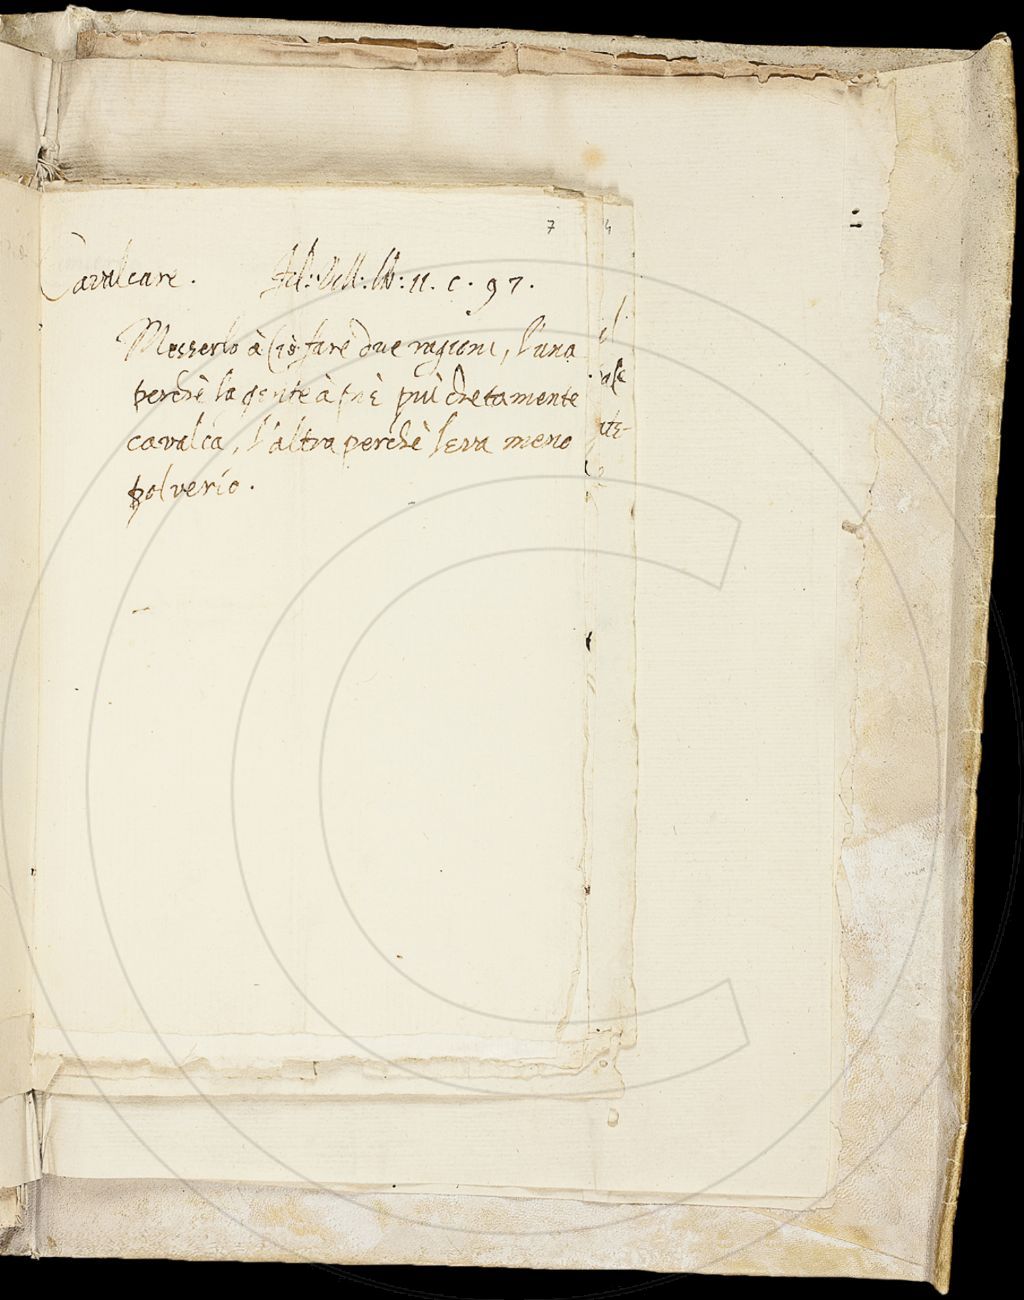 7
4
Cavalcare. Fil: Vill. lib: 11. c. 97.
Messerlo à ciò fare due ragioni, l'una
perchè la gente à piè più chetamente
cavalca, l'altra perchè leva meno
polverio.